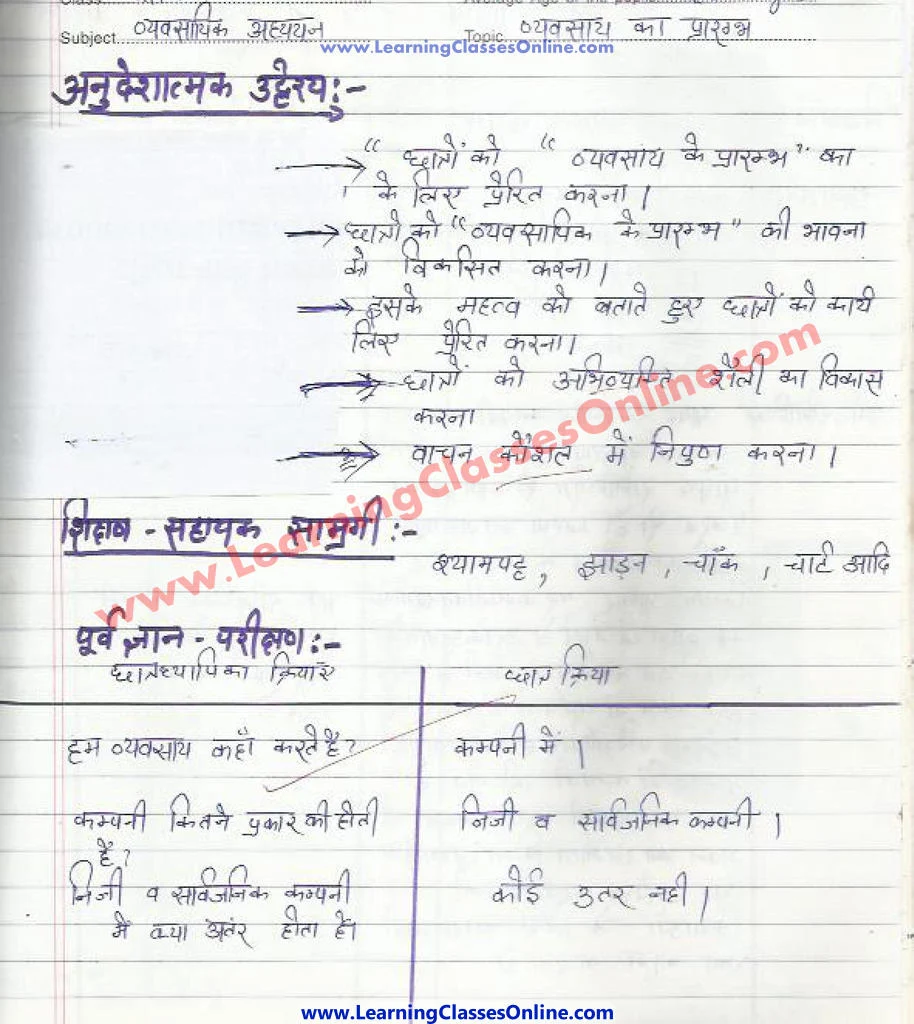 Subject व्यवसायिक अध्ययन Topic व्यवसाय का प्रारम्भ
www.LearningClassesOnline.com
अनुदेशात्मक उद्देश्य :-
→ " छात्रों को " व्यवसाय के प्रारम्भ" का
के लिए प्रेरित करना।
→ छात्रो को "व्यवसायिक के प्रारम्भ" की भावना
को विकसित करना।
→ इसके महत्व को बताते हुए छात्रों को कार्य
लिए प्रेरित करना।
→ छात्रों को अभिव्यक्ति शैली का विकास
करना
→ वाचन कौशल में निपुण करना।
www.LearningClassesOnline.com
शिक्षण - सहायक सामग्री :-
श्यामपट्ट , झाड़न , चॉक , चार्ट आदि
पूर्व ज्ञान - परीक्षण :-
छात्रध्यापिका क्रियाएं छात्र क्रिया
हम व्यवसाय कहाँ करते है? कम्पनी में।
कम्पनी कितने प्रकार की होती निजी व सार्वजनिक कम्पनी।
है?
निजी व सार्वजनिक कम्पनी कोई उतर नही।
में क्या अंतर होता है।
www.LearningClassesOnline.com